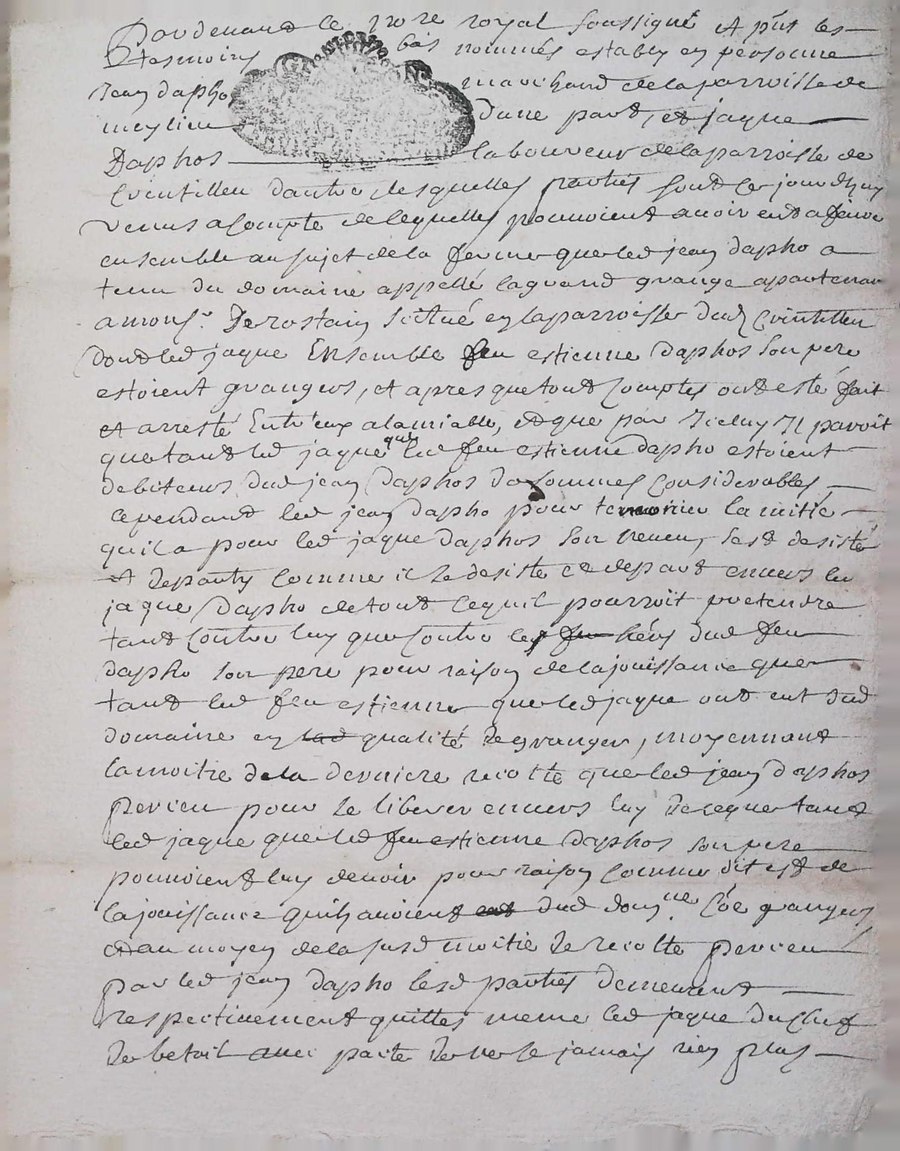 Pardevant le no.re royal soussigné et p.nt les
tesmoins bas nommés estably en personne
Jean dapho marchand de la parroisse de
meylieu d'une part, et jaque
Daphos labouveur de la parroisse de
Cvintilleu d'autre lesquelles parties sont ce jourdhuy
venus a Compte de lequelles pouvoient avoir ent a faire
ensemble au sujet de la ferme que led jean dapho a
tenu du domaine appellé la grand grange apartenan
a mons.r De rostain scitué en la parroisse dud Cvintilleu
dont led jaque Ensemble feu estienne daphos son pere
estoient grangers, et apres que tout Comptes ont esté fait
et arresté Entr'eux alamiable, et que par Iceluy Il paroit
que tant led jaque que led feu estienne dapho estoient
debiteurs dud jean daphos de sommes Considerables
cependant led jean dapho pour temonier la mitié
quil a pour led jaque daphos son neveu, sest desisté
et departy comme il se desiste et depart envers led
jaque dapho de tout ce quil pourroit pretendre
tant Contre luy que Contre les feu hérs dud feu
dapho son pere pour raison de la jouissance que
tant led feu estienne que led jaque ont eut dud
domaine en lad qualité de granger, moyennant
la moitie de la derniere recolte que led jean daphos
perceu pour se liberer envers luy de ce que tant
led jaque que led feu estienne daphos son pere
pouvoient luy devoir pour raison comme dit est de
la jouissance quils avoient eut dud dom.ne Cõe grangers
et au moyen de la susd moitie de recolte perceu
par led jean dapho lesd parties demeurent
respectivement quittes meme led jaque du
de betail avec pacte de ne se jamais rien plus